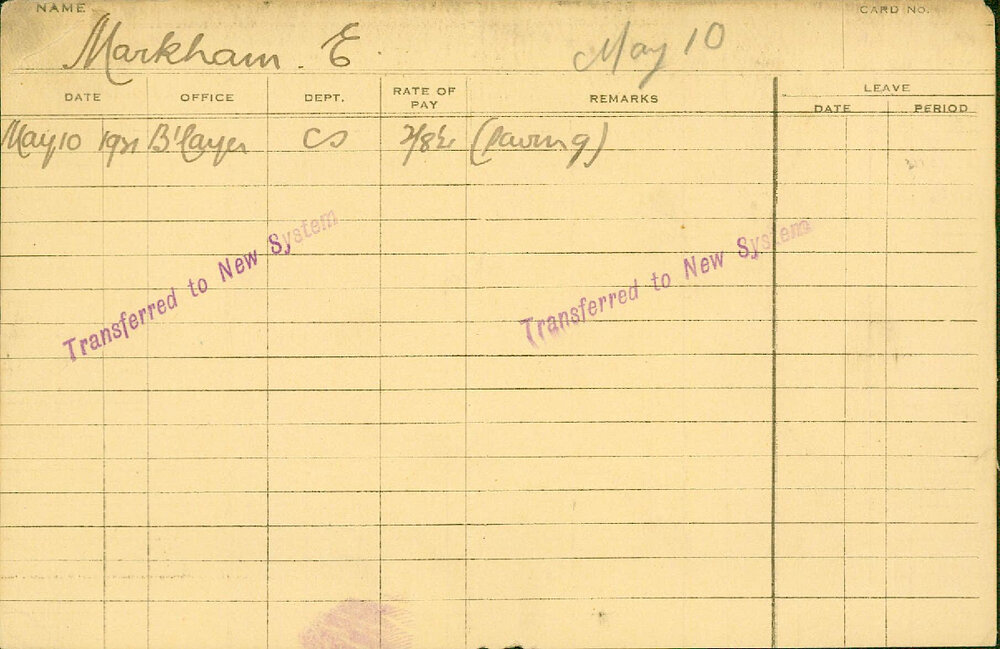 NAME CARD NO.
Markham. E. May 10
LEAVE
DATE OFFICE DEPT. RATE OF PAY REMARKS DATE PERIOD
May 10 1921 B'layer CS 2/8½ (Paving)
Transferred to New System Transferred to New System